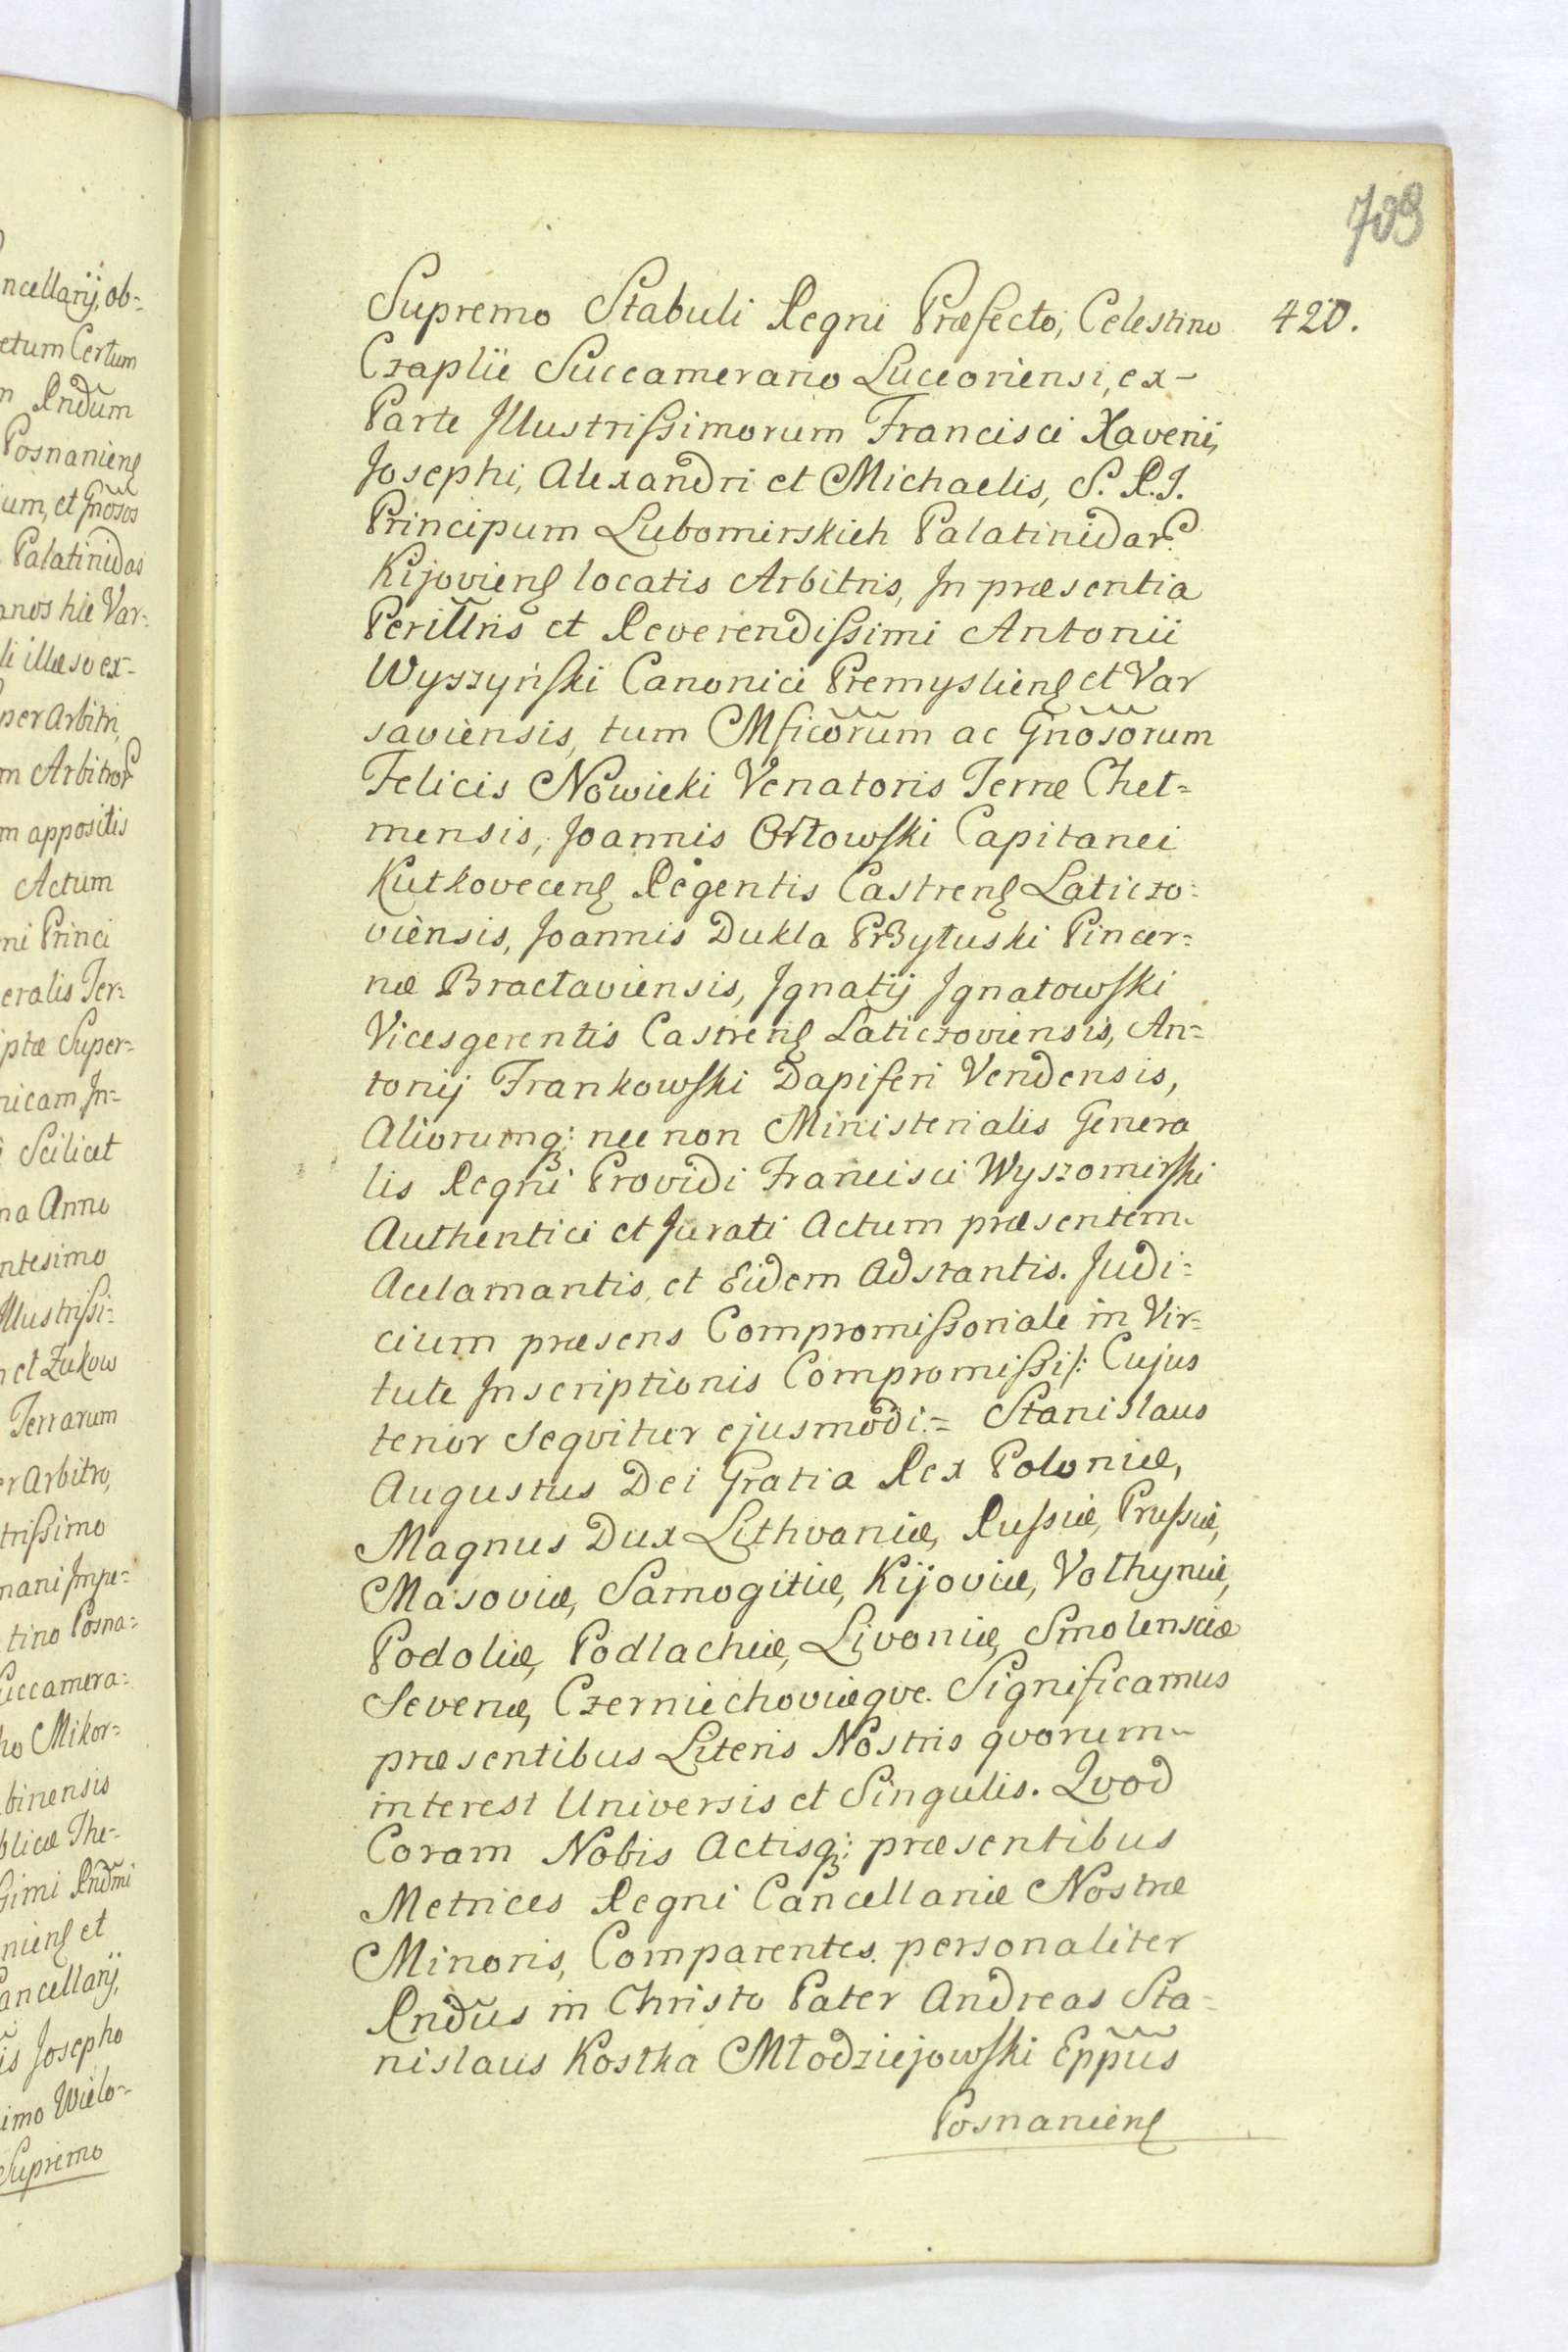 ncellarij, ob-
etum Certum
m Rndum
Posnanien̄
ium, et Gnosos
Palatinidas
anos hic Var-
li illæso ex-
per Arbitri,
m Arbitror
m appositis
Actum
mi Princi
eralis Ter-
iptæ Super-
nicam In-
Scilicet
na Anno
ntesimo
Illustrissi-
et Zukow
Terrarum
er Arbitro,
trissimo
mani Impe-
tino Posna-
uccamera-
ho Mikor-
binensis
blicæ The-
ssimi Rndmi
nien̄ et
ancellarij,
is Josepho
imo Wielo-
Supremo
709
420.
Supremo Stabuli Regni Præfecto, Celestino
Czaplie Succamerario Luceoriensi, ex-
Parte Illustrissimorum Francisci Xaverii,
Josephi, Alexandri et Michaelis, S. R. I.
Principum Lubomirskich Palatinidar.
Kijovien̄ locatis Arbitris, In præsentia
Perillris et Reverendissimi Antonii
Wyszyński Canonici Premyslien̄ et Var
saviensis, tum Mficorum ac Gnosorum
Felicis Nowicki Venatoris Terræ Cheł=
mensis, Joannis Orłowski Capitanei
Kutkovecen̄ Regentis Castren̄ Laticzo=
viensis, Joannis Dukla Przyłuski Pincer=
næ Bracłaviensis, Ignatij Ignatowski
Vicesgerentis Castren̄ Laticzoviensis, An=
tonij Frankowski Dapiferi Vendensis,
Aliorumq: nec non Ministerialis Genera
lis Regni Providi Francisci Wyszomirski
Authentici et Jurati Actum præsentem
Acclamantis, et Eidem Adstantis. Judi=
cium præsens Compromissoriale in Vir=
tute Inscriptionis Compromissi /: Cujus
tenor seqvitur ejusmodi:= Stanislaus
Augustus Dei Gratia Rex Poloniæ,
Magnus Dux Lithvaniæ, Russiæ, Prussiæ,
Masoviæ, Samogitiæ, Kijoviæ, Volhyniæ,
Podoliæ, Podlachiæ, Livoniæ, Smolensciæ
Severiæ, Czerniechoviæqve. Significamus
præsentibus Literis Nostris qvorum
interest Universis et Singulis. Qvod
Coram Nobis Actisq: præsentibus
Metrices Regni Cancellariæ Nostræ
Minoris, Comparentes personaliter
Rndus in Christo Pater Andreas Sta=
nislaus Kostka Młodziejowski Eppus
Posnanien̄